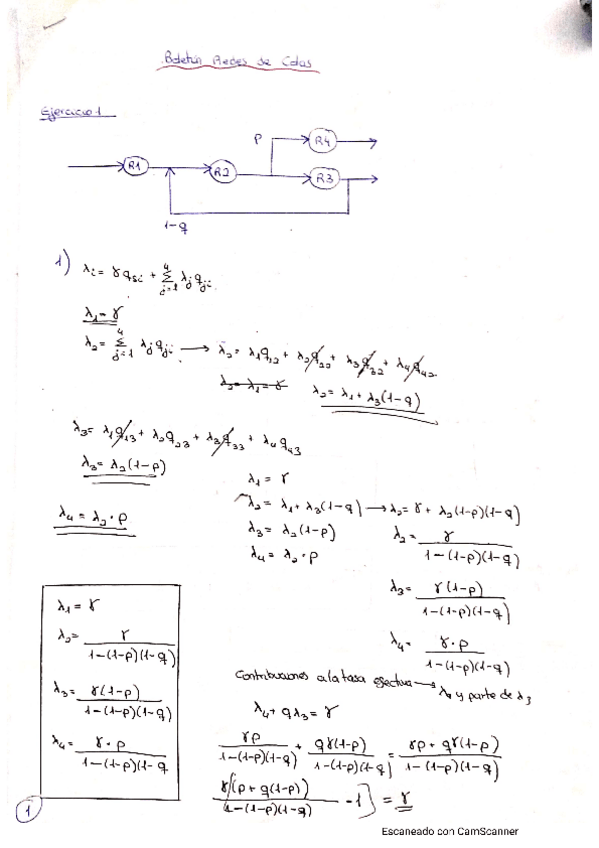 Boletín Redes de Colas
Ejercicio 1
P R4
R1 R2 R3
1-q
1) λi = γ qsi + Σ(j=1..4) λj qji
λ1 = γ
λ2 = Σ(j=1..4) λj qji → λ2 = λ1 q12 + λ2 q22 + λ3 q32 + λ4 q42
λ2 = λ1 = γ λ2 = λ1 + λ3(1-q)
λ3 = λ1 q13 + λ2 q23 + λ3 q33 + λ4 q43
λ3 = λ2(1-p)
λ4 = λ2·p
λ1 = γ
λ2 = λ1 + λ3(1-q) → λ2 = γ + λ2(1-p)(1-q)
λ3 = λ2(1-p)
λ4 = λ2·p
λ2 = γ / 1-(1-p)(1-q)
λ3 = γ(1-p) / 1-(1-p)(1-q)
λ4 = γ·p / 1-(1-p)(1-q)
λ1 = γ
λ2 = γ / 1-(1-p)(1-q)
λ3 = γ(1-p) / 1-(1-p)(1-q)
λ4 = γ·p / 1-(1-p)(1-q
Contribuciones a la tasa efectiva → λ4 y parte de λ3
λ4 + qλ3 = γ
γp / 1-(1-p)(1-q) + qγ(1-p) / 1-(1-p)(1-q) = γp + qγ(1-p) / 1-(1-p)(1-q)
γ(p + q(1-p)) / 1-(1-p)(1-q) - 1] = γ
1
Escaneado con CamScanner